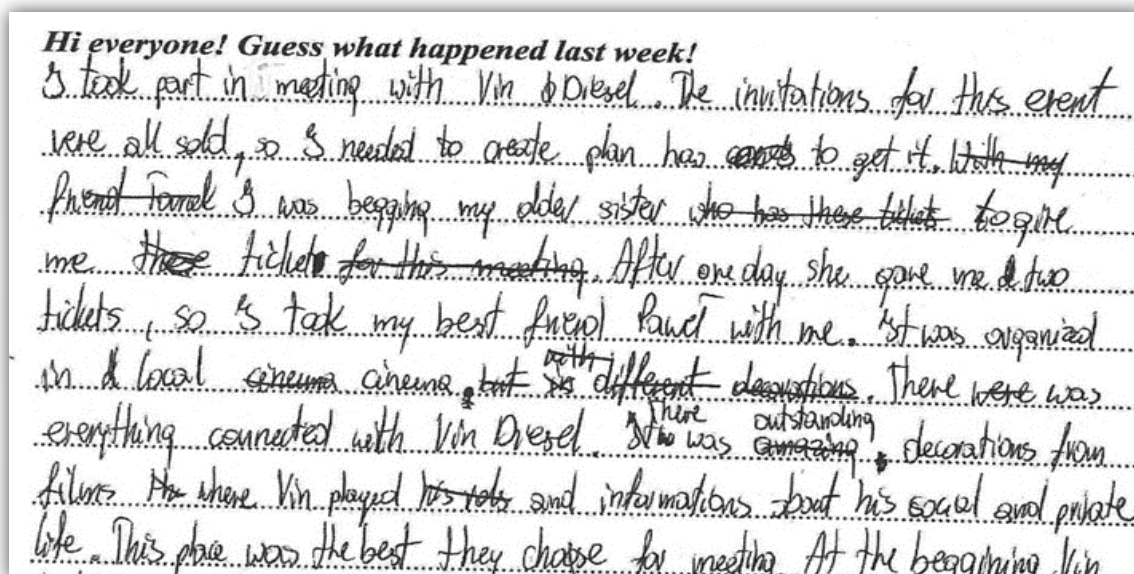 Hi everyone! Guess what happened last week!
I took part in meeting with Vin Diesel. The invitations for this event
were all sold, so I needed to create plan has to get it. With my
friend Paweł I was begging my older sister who has these tickets to give
me these ticket for this meeting. After one day she gave me two
tickets, so I took my best friend Paweł with me. It was organized
in local cinema cinema. but with different decorations. There were was
everything connected with Vin Diesel. There was amazing outstanding decorations from
films where Vin played his role and informations about his social and private
life. This place was the best they choose for meeting. At the beggining Vin